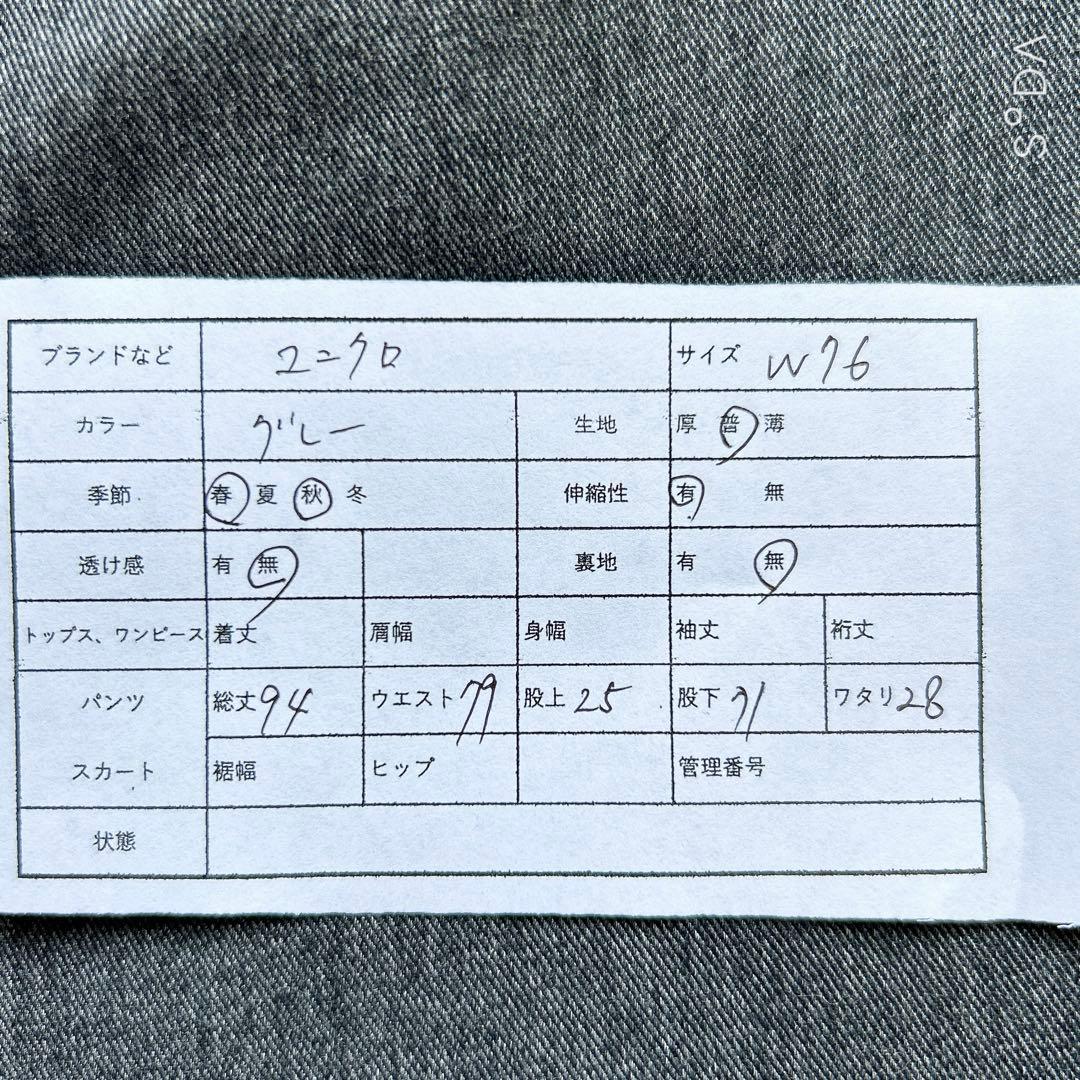 VD。S
ブランドなど ユニクロ サイズ W76
カラー グレー 生地 厚 普 薄
季節 春 夏 秋 冬 伸縮性 有 無
透け感 有 無 裏地 有 無
トップス、ワンピース 着丈 肩幅 身幅 袖丈 裄丈
パンツ 総丈 94 ウエスト 79 股上 25 股下 71 ワタリ 28
スカート 裾幅 ヒップ 管理番号
状態